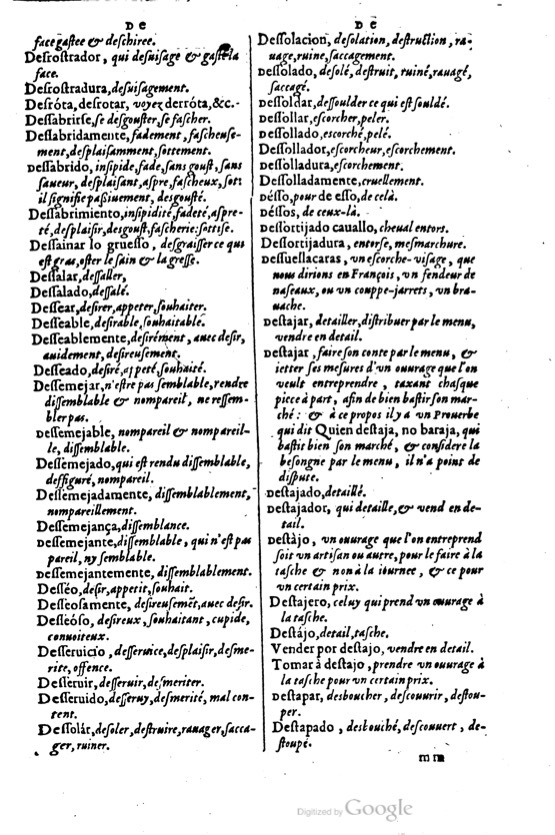 D E
face gastee & deschiree.
Desrostrador, qui desuisage & gaste la
face.
Desrostradura, desuisagement.
Desróta, desrotar, voyez derróta, &c.
Dessabrirse, se desgouster, se fascher.
Dessabridamente, fadement, fascheuse-
ment, desplaisamment, sottement.
Dessabrido, insipide, fade, sans goust, sans
saueur, desplaisant, aspre, fascheux, sot:
il signifie passiuement, desgousté.
Dessabrimiento, insipidité, fadeté, aspre-
té, desplaisir, desgoust, fascherie: sottise.
Dessainar lo gruesso, desgraisser ce qui
est gras, oster le sain & la gresse.
Dessalar, dessaller,
Dessalado, dessalé.
Dessear, desirer, appeter, souhaiter.
Desseable, desirable, souhaitable.
Desseablemente, desirément, auec desir,
auidement, desireusement.
Desseado, desiré, appeté, souhaité.
Dessemejar, n'estre pas semblable, rendre
dissemblable & nompareil, ne ressem-
bler pas.
Dessemejable, nompareil & nompareil-
le, dissemblable.
Dessemejado, qui est rendu dissemblable,
desfiguré, nompareil.
Dessemejadamente, dissemblablement,
nompareillement.
Dessemejança, dissemblance.
Dessemejante, dissemblable, qui n'est pas
pareil, ny semblable.
Dessemejantemente, dissemblablement.
Desséo, desir, appetit, souhait.
Desseosamente, desireusemẽt, auec desir.
Desseóso, desireux, souhaitant, cupide,
conuoiteux.
Desseruicio, desseruice, desplaisir, desme-
rite, offence.
Desseruir, desseruir, desmeriter.
Desseruido, desseruy, desmerité, mal con-
tent.
Dessolár, desoler, destruire, rauager, sacca-
ger, ruiner.
D E
Dessolacion, desolation, destruction, ra-
uage, ruine, saccagement.
Dessolado, desolé, destruit, ruiné, rauagé,
saccagé.
Dessoldar, dessoulder ce qui est souldé.
Dessollar, escorcher, peler.
Dessollado, escorché, pelé.
Dessollador, escorcheur, escorchement.
Dessolladura, escorchement.
Dessolladamente, cruellement.
Désso, pour de esso, de celà.
Déssos, de ceux-là.
Dessortijado cauallo, cheual entors.
Dessortijadura, entorse, mesmarchure.
Dessuellacaras, vn escorche-visage, que
nous dirions en François, vn fendeur de
naseaux, ou vn couppe-jarrets, vn bra-
uache.
Destajar, detailler, distribuer par le menu,
vendre en detail.
Destajar, faire son conte par le menu, &
ietter ses mesures d'vn ouurage que l'on
veult entreprendre, taxant chasque
piece à part, afin de bien bastir son mar-
ché: & à ce propos il y a vn Prouerbe
qui dit Quien destaja, no baraja, qui
bastit bien son marché, & considere la
besongne par le menu, il n'a point de
dispute.
Destajado, detaillé.
Destajador, qui detaille, & vend en de-
tail.
Destàjo, vn ouurage que l'on entreprend
soit vn artisan ou autre, pour le faire à la
tasche & non à la iournee, & ce pour
vn certain prix.
Destajero, celuy qui prend vn ouurage à
la tasche.
Destájo, detail, tasche.
Vender por destajo, vendre en detail.
Tomar à destajo, prendre vn ouurage à
la tasche pour vn certain prix.
Destapar, desboucher, descouurir, destou-
per.
Destapado, desbouché, descouuert, de-
stoupé.
m m
Digitized by Google